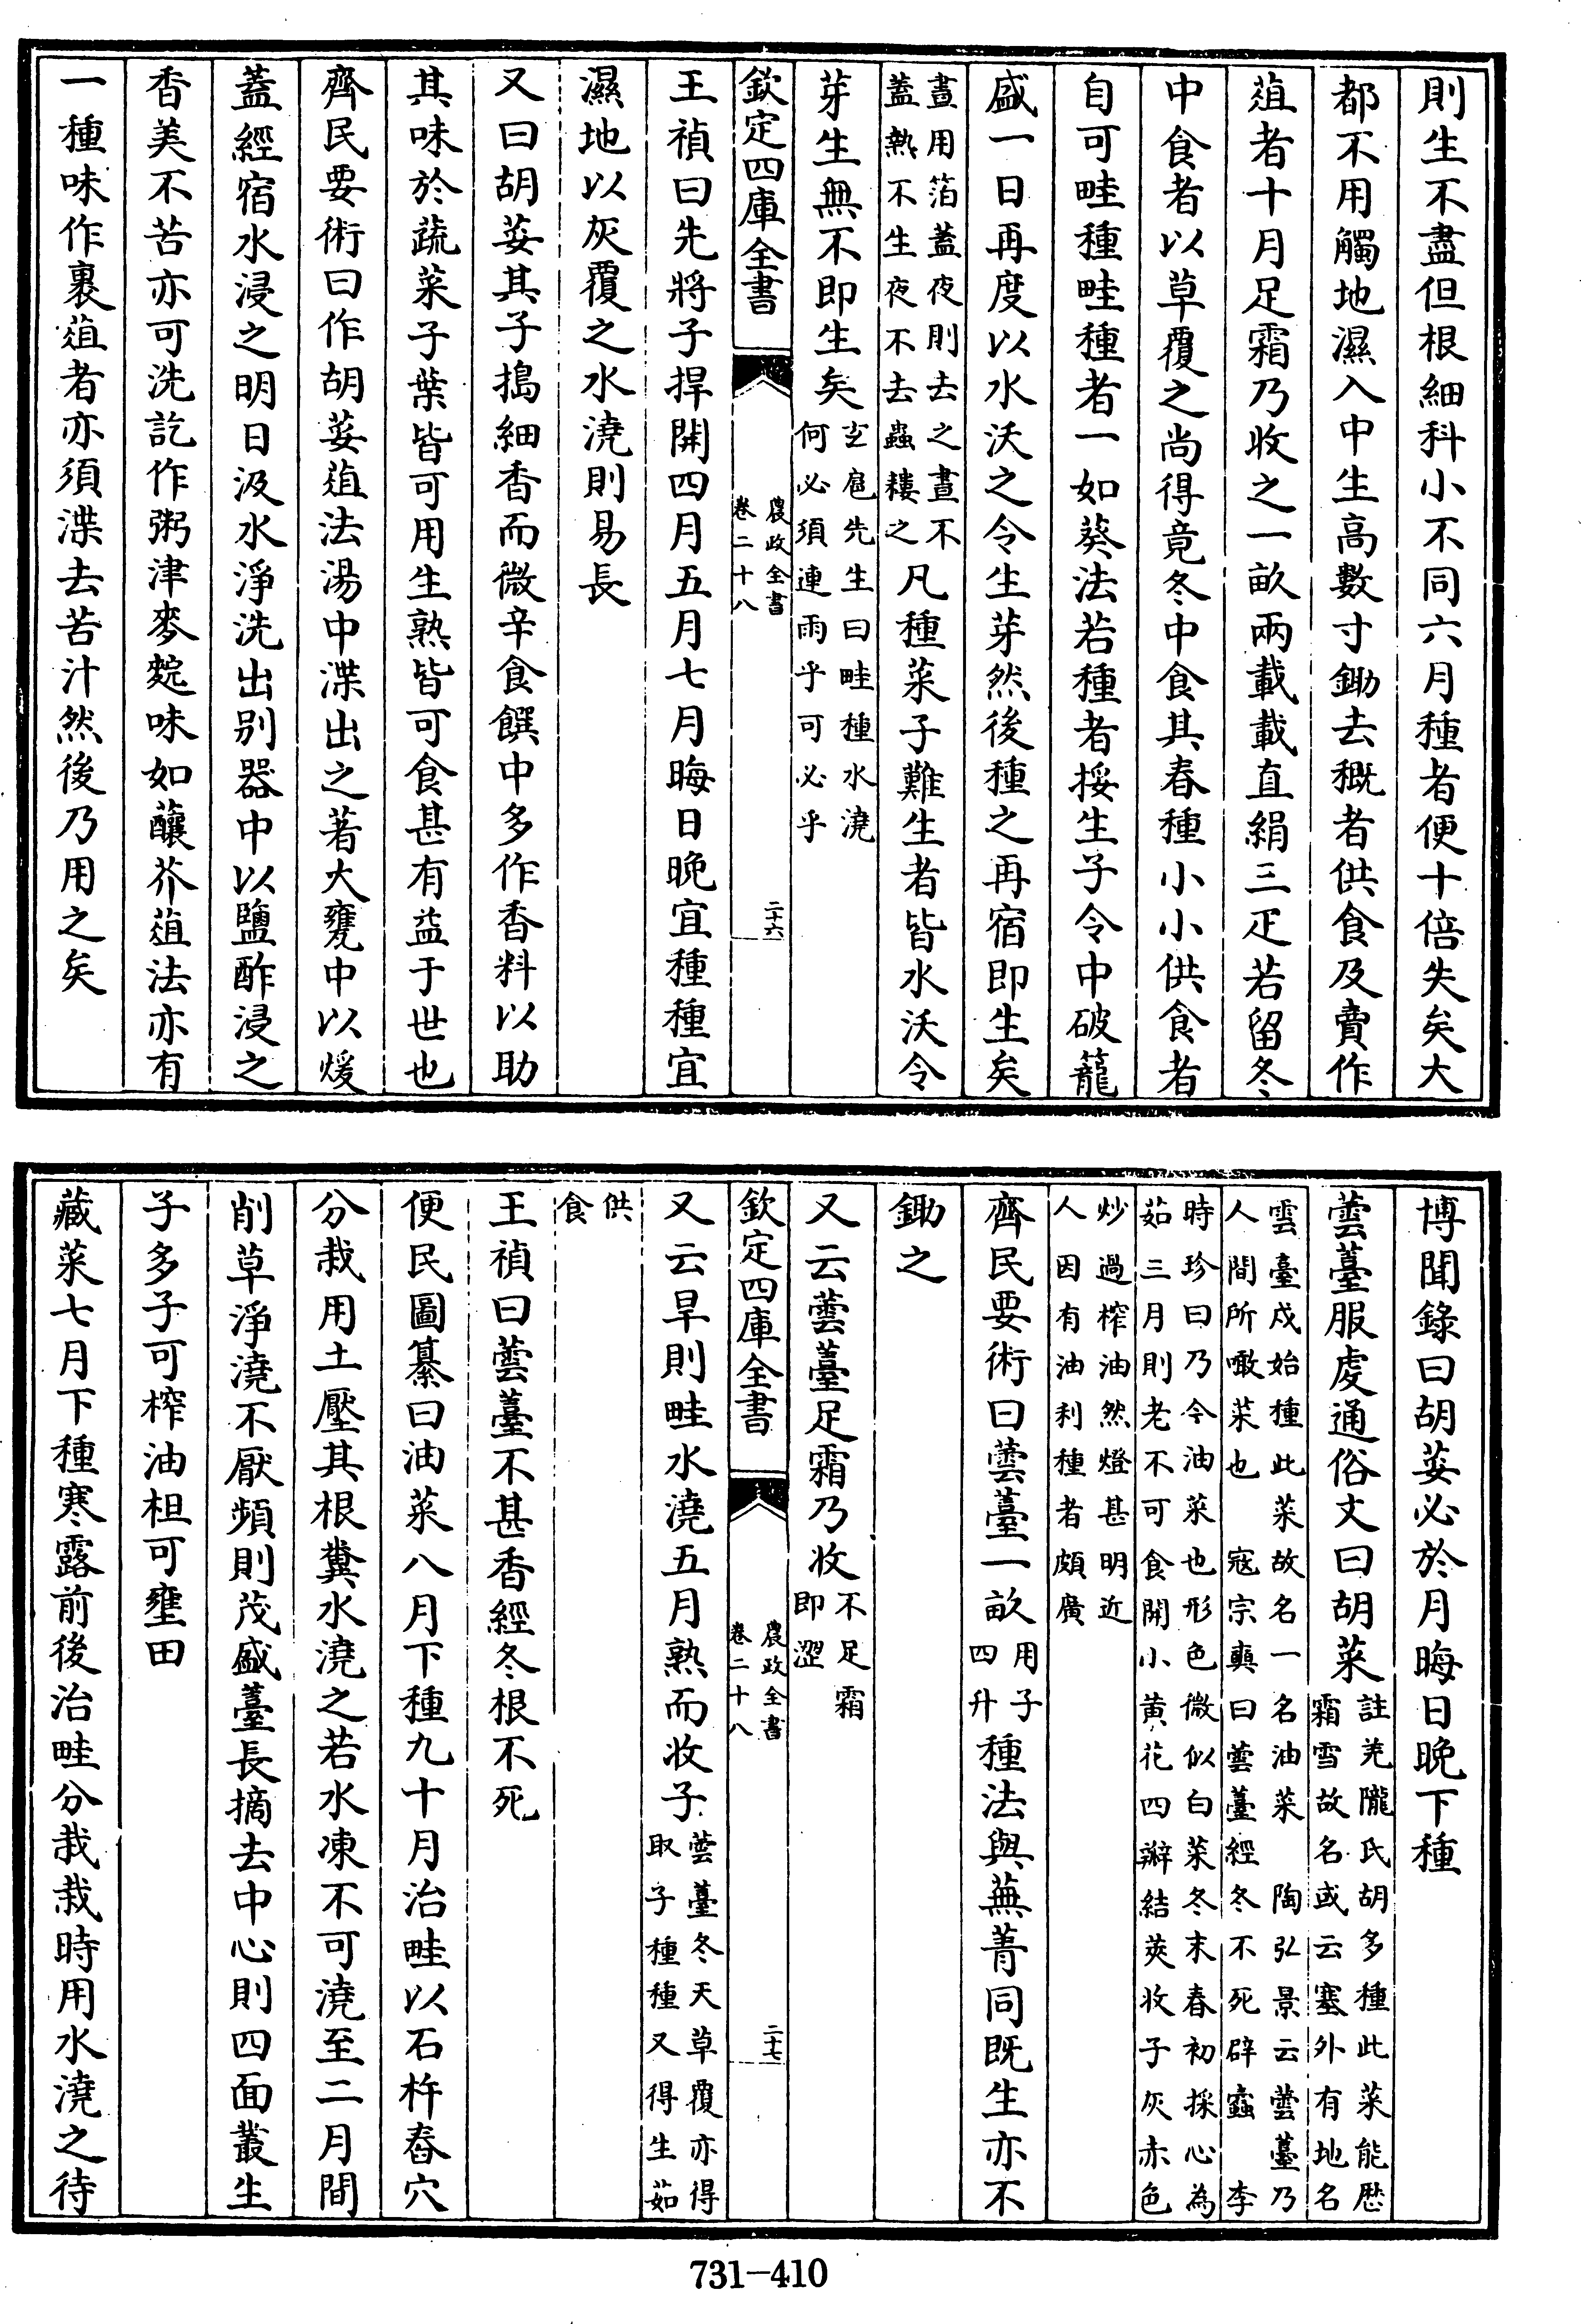 則生不盡但根細科小不同六月種者便十倍失矣大
都不用觸地濕入中生高數寸鋤去穊者供食及賣作
葅者十月足霜乃收之一畝兩載載直絹三疋若留冬
中食者以草覆之尚得竟冬中食其春種小小供食者
自可畦種畦種者一如葵法若種者挼生子令中破籠
盛一日再度以水沃之令生芽然後種之再宿即生矣
晝用箔蓋夜則去之晝不
蓋熱不生夜不去蟲耬之
凡種菜子難生者皆水沃令
芽生無不即生矣
玄扈先生曰畦種水澆
何必須連雨乎可必乎
欽定四庫全書
農政全書
卷二十八
二十六
王禎曰先將子捍開四月五月七月晦日晚宜種種宜
濕地以灰覆之水澆則易長
又曰胡荽其子搗細香而微辛食饌中多作香料以助
其味於蔬菜子葉皆可用生熟皆可食甚有益于世也
齊民要術曰作胡荽葅法湯中渫出之著大甕中以煖
蓋經宿水浸之明日汲水淨洗出别器中以鹽酢浸之
香美不苦亦可洗訖作粥津麥䴷味如釀芥葅法亦有
一種味作裹葅者亦須渫去苦汁然後乃用之矣
博聞錄曰胡荽必於月晦日晚下種
蕓薹服虔通俗文曰胡菜
註羌隴氏胡多種此菜能歷
霜雪故名或云塞外有地名
雲臺戍始種此菜故名一名油菜 陶弘景云蕓薹乃
人間所噉菜也 寇宗奭曰蕓薹經冬不死辟蠧 李
時珍曰乃今油菜也形色微似白菜冬末春初採心為
茹三月則老不可食開小黄花四辦結莢收子灰赤色
炒過榨油然燈甚明近
人因有油利種者頗廣
齊民要術曰蕓薹一畝
用子
四升
種法與蕪菁同既生亦不
鋤之
又云蕓薹足霜乃收
不足霜
即澀
欽定四庫全書
農政全書
卷二十八
二十七
又云旱則畦水澆五月熟而收子
蕓薹冬天草覆亦得
取子種種又得生茹
供
食
王禎曰蕓薹不甚香經冬根不死
便民圖纂曰油菜八月下種九十月治畦以石杵舂穴
分栽用土壓其根糞水澆之若水凍不可澆至二月間
削草淨澆不厭頻則茂盛薹長摘去中心則四面叢生
子多子可榨油柤可壅田
藏菜七月下種寒露前後治畦分栽栽時用水澆之待
731—410